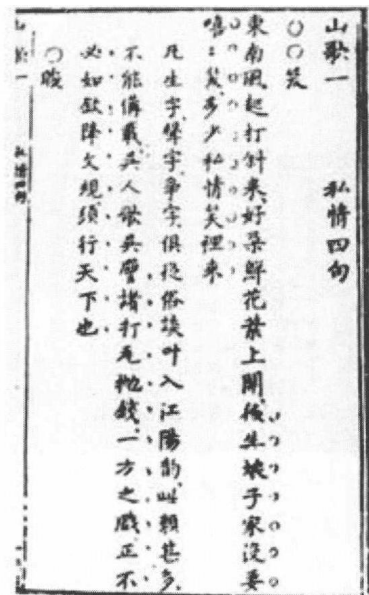 山歌一　私情四句
○○笑
東南風起打斜來好朵鮮花葉上開後生娘子家沒要
嘻〻笑多少私情笑裡來
凡生字聲字爭字俱從俗談叶入江陽韵此類甚多
不能備載吳人歌吳譬諸打瓦抛錢一方之戲正不
必如欽降文規須行天下也
○睃
山歌一　私情四句